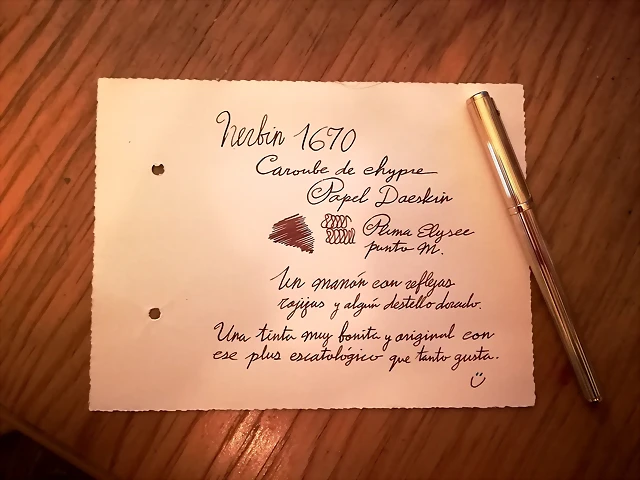 Herbin 1670
Caroube de chypre
Papel Daeskin
Pluma Elysee
punto M.
Un marrón con reflejos
rojizos y algún destello dorado.
Una tinta muy bonita y original con
ese plus escatológico que tanto gusta.